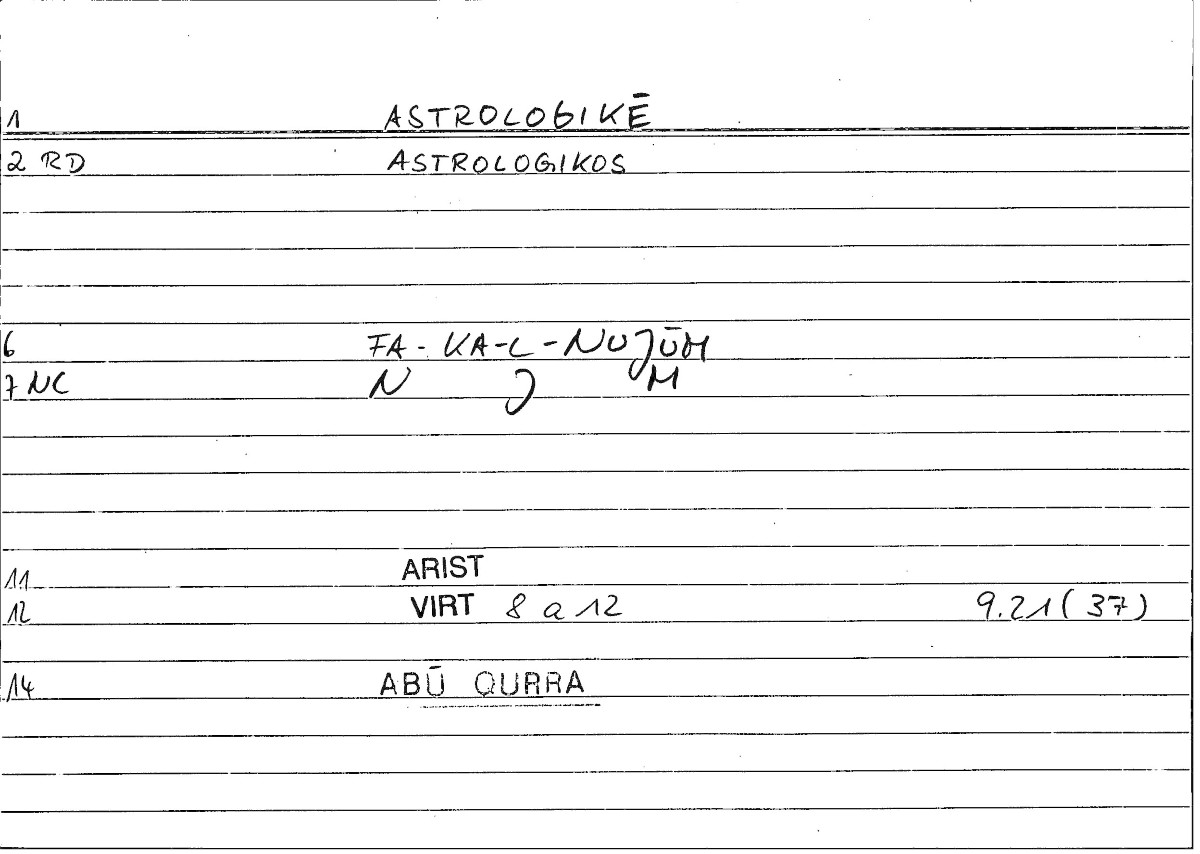 1 ASTROLOGIKĒ
2 RD ASTROLOGIKOS
6 FA-KA-L-NUJŪM
7 NC N J M
11 ARIST
12 VIRT 8 a 12 9.21 (37)
14 ABŪ QURRA